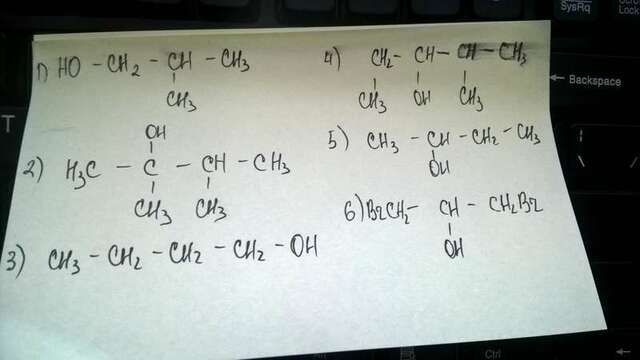 1) HO - CH2 - CH - CH3
CH3
2) H3C - C - CH - CH3
OH
CH3 CH3
3) CH3 - CH2 - CH2 - CH2 - OH
4) CH2 - CH - CH - CH3
CH3 OH CH3
5) CH3 - CH - CH2 - CH3
OH
6) BrCH2 - CH - CH2Br
OH
SysRq
Scroll
Lock
← Backspace
T
Ctrl